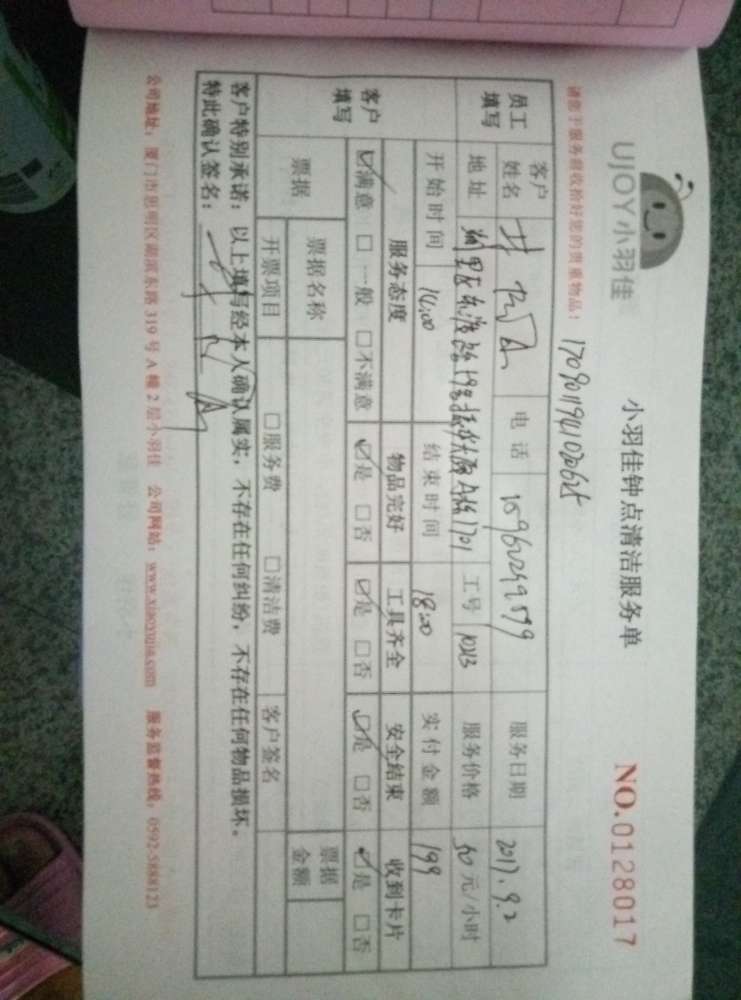 UJOY小羽佳
小羽佳钟点清洁服务单
NO.0128017
请您于服务前收拾好您的贵重物品!
员工填写
客户姓名
电话
服务日期 2017.9.2
地址
工号
服务价格 50元/小时
开始时间 14:00 结束时间 18:00 实付金额 199
客户填写
服务态度 物品完好 工具齐全 安全结束 收到卡片
☑满意 □一般 □不满意 ☑是 □否 ☑是 □否 ☑是 □否 ☑是 □否
票据
票据名称
票据金额
开票项目 □服务费 □清洁费 客户签名
客户特别承诺:以上填写经本人确认属实,不存在任何纠纷,不存在任何物品损坏。
特此确认签名:
公司地址:厦门市思明区湖滨东路319号A幢2层小羽佳 公司网站:www.xiaoyujia.com 服务监督热线:0592-5888123